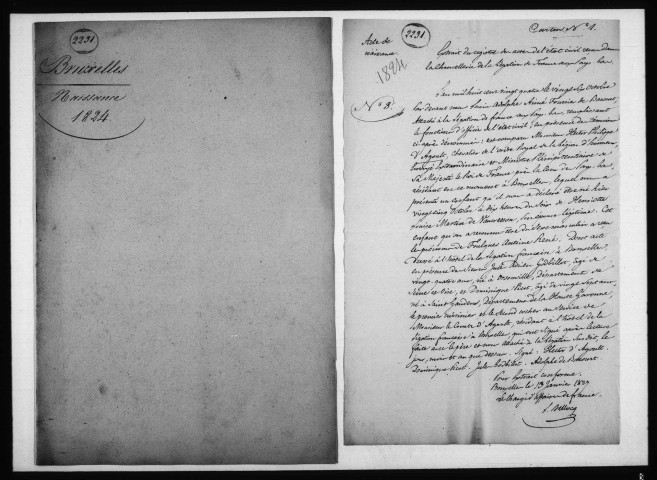 2231
Bruxelles
Naissance
1824
2231
Acte de
naissance
1824
N° 3.
Extrait du registre des actes de l'état civil tenu dans
la Chancellerie de la Légation de France aux Pays bas
L'an mil huit cent vingt quatre le vingt six octobre
par devant nous Louis Adolphe Aimé Fourier de Bacourt,
Attaché à la Légation de france aux Pays bas, remplissant
les fonctions d'officier de l'état civil, en présence des témoins
ci après dénommés: est comparu Monsieur Hector Philippe
D'Agoult, Chevalier de l'ordre Royal de la légion d'honneur,
Envoyé Extraordinaire et Ministre Plénipotentiaire de
Sa Majesté le Roi de France près la Cour des Pays bas,
résidant en ce moment à Bruxelles, lequel nous a
présenté un enfant qu'il nous a déclaré être né hier
vingt cinq octobre à dix heures du soir de Henriette
son épouse légitime. Cet
enfant qu'on a reconnu être du sexe masculin a reçu
les prénoms de Foulques Antoine René. Dont acte
dressé à l'hôtel de la légation française à Bruxelles,
en présence des Sieurs Jules Adrien âgé de
vingt quatre ans, né à département de
Seine et Oise, et Dominique âgé de vingt sept ans
né à Saint Gaudens, département de la Haute Garonne,
le premier cuisinier et le second cocher au service de
Monsieur le Comte D'Agoult, résidant à l'hôtel de la
légation française à Bruxelles, qui ont signé après lecture
faite avec le père et nous attaché à la légation Susdit, les
jour, mois et an que dessus. Signé: Hector d'Agoult.
Dominique Jules Adolphe de Bacourt
Pour Extrait conforme
Bruxelles le 13 Janvier
Le Chargé d'affaires de france